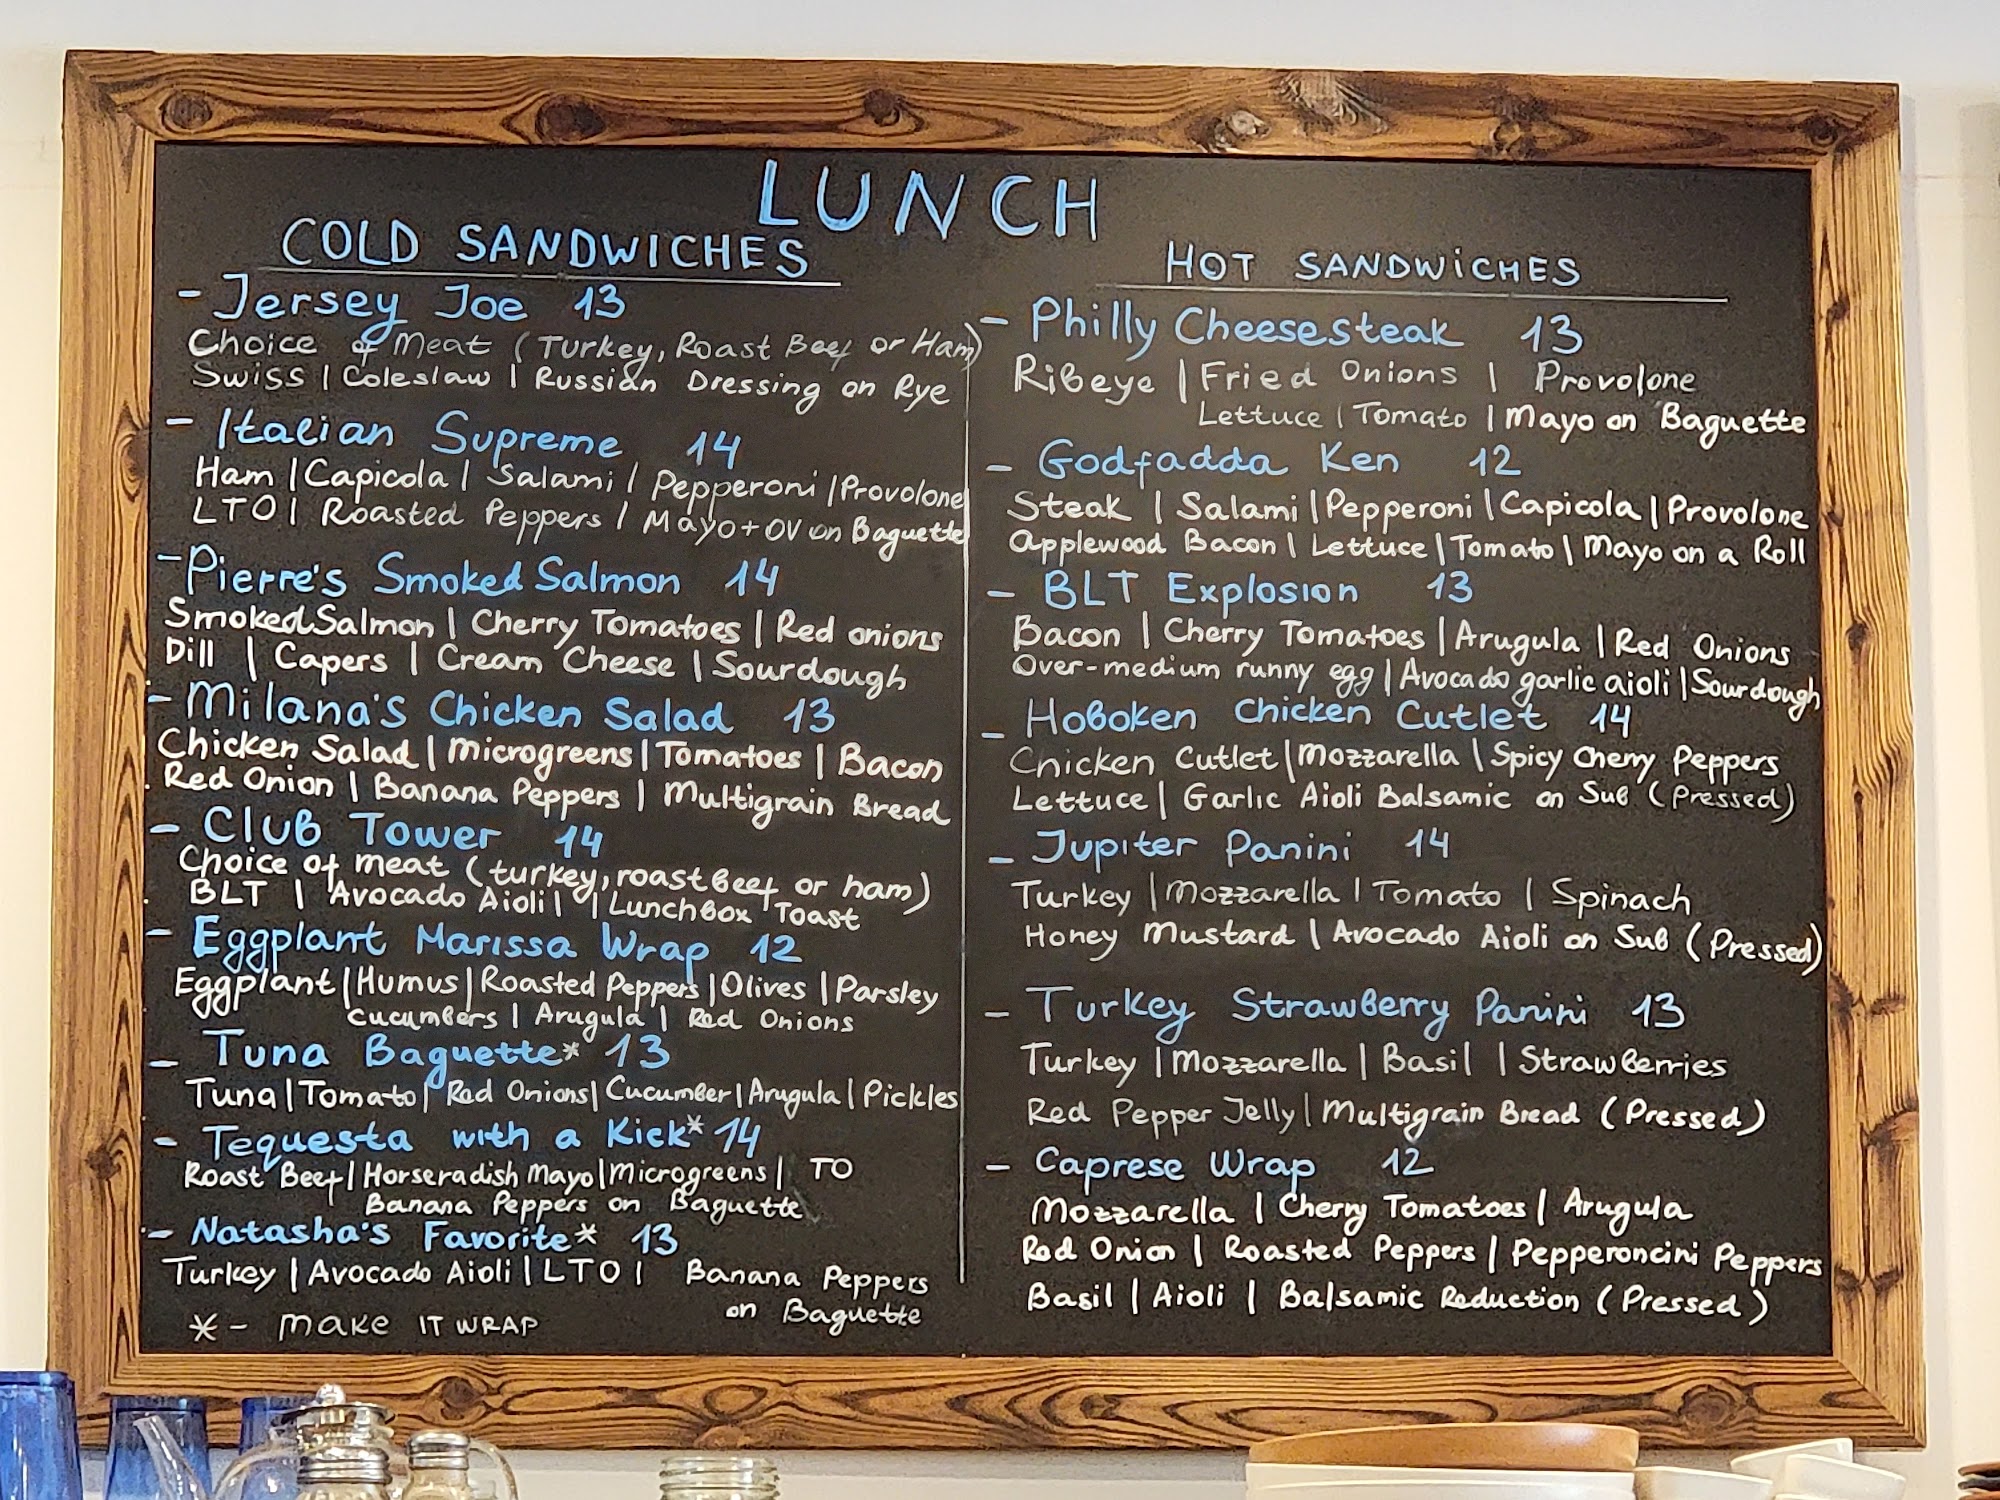 LUNCH
COLD SANDWICHES
- Jersey Joe 13
Choice of Meat (Turkey, Roast Beef or Ham)
Swiss | Coleslaw | Russian Dressing on Rye
- Italian Supreme 14
Ham | Capicola | Salami | Pepperoni | Provolone
LTO | Roasted Peppers | Mayo + OV on Baguette
- Pierre's Smoked Salmon 14
Smoked Salmon | Cherry Tomatoes | Red onions
Dill | Capers | Cream Cheese | Sourdough
- Milana's Chicken Salad 13
Chicken Salad | Microgreens | Tomatoes | Bacon
Red Onion | Banana Peppers | Multigrain Bread
- Club Tower 14
Choice of meat (turkey, roast beef or ham)
BLT | Avocado Aioli | | Lunchbox Toast
- Eggplant Marissa Wrap 12
Eggplant | Humus | Roasted Peppers | Olives | Parsley
Cucumbers | Arugula | Red Onions
- Tuna Baguette* 13
Tuna | Tomato | Red Onions | Cucumber | Arugula | Pickles
- Tequesta with a Kick* 14
Roast Beef | Horseradish Mayo | Microgreens | TO
Banana Peppers on Baguette
- Natasha's Favorite* 13
Turkey | Avocado Aioli | LTO | Banana Peppers
on Baguette
* - MAKE IT WRAP
HOT SANDWiCHES
- Philly Cheesesteak 13
Ribeye | Fried Onions | Provolone
Lettuce | Tomato | Mayo on Baguette
- Godfadda Ken 12
Steak | Salami | Pepperoni | Capicola | Provolone
Applewood Bacon | Lettuce | Tomato | Mayo on a Roll
- BLT Explosion 13
Bacon | Cherry Tomatoes | Arugula | Red Onions
Over-medium runny egg | Avocado garlic aioli | Sourdough
- Hoboken Chicken Cutlet 14
Chicken Cutlet | Mozzarella | Spicy Cherry Peppers
Lettuce | Garlic Aioli Balsamic on Sub (Pressed)
- Jupiter Panini 14
Turkey | Mozzarella | Tomato | Spinach
Honey Mustard | Avocado Aioli on Sub (Pressed)
- Turkey Strawberry Panini 13
Turkey | Mozzarella | Basil | Strawberries
Red Pepper Jelly | Multigrain Bread (Pressed)
- Caprese Wrap 12
Mozzarella | Cherry Tomatoes | Arugula
Red Onion | Roasted Peppers | Pepperoncini Peppers
Basil | Aioli | Balsamic Reduction (Pressed)